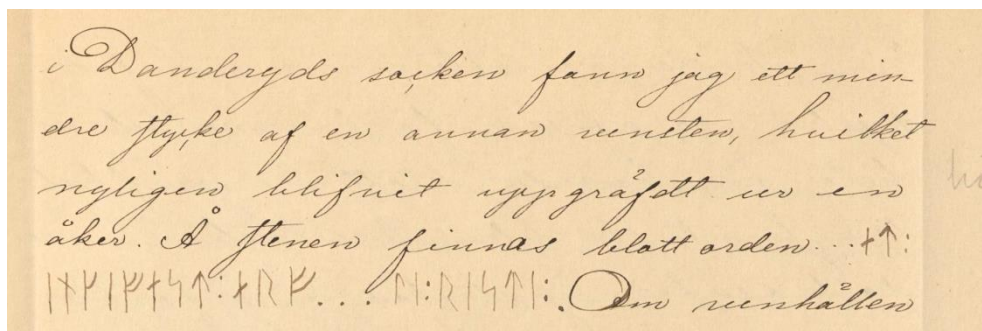 i Danderyds socken fann jag ett min-
dre stycke af en annan runsten, hvilket
nyligen blifvit uppgräfdt ur en
åker. Å stenen finnas blott orden... ᛅᛏ:
ᛁᚾᚴᛁᚠᛅᛋᛏ:ᛅᚱᚠ... :ᚱᛁᛋᛏᛁ:. Om runhällen